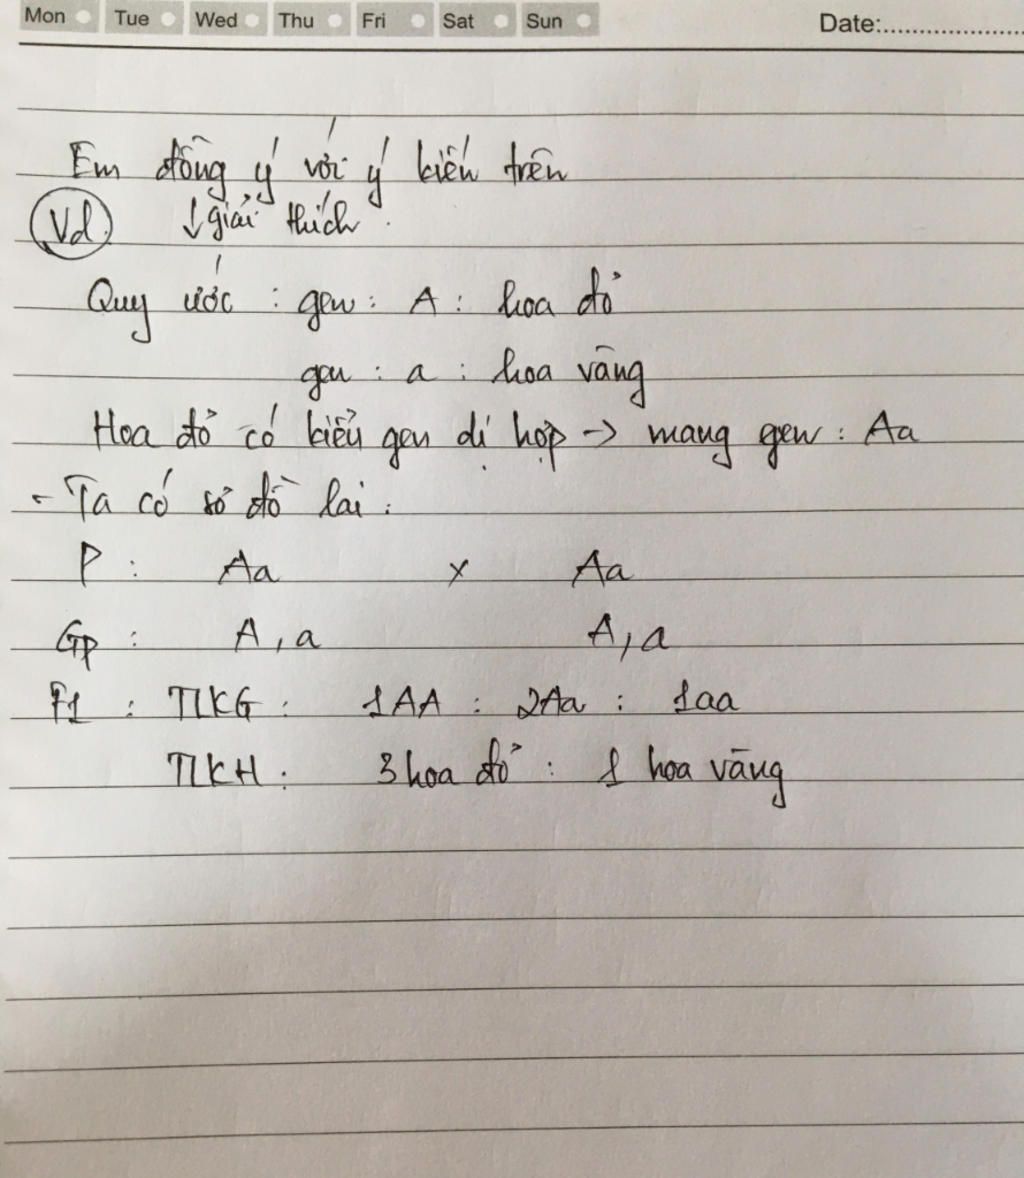 Mon Tue Wed Thu Fri Sat Sun Date:.....................
Em đồng ý với ý kiến trên
Vd ↓ giải thích.
Quy ước : gen : A : hoa đỏ
gen : a : hoa vàng
Hoa đỏ có kiểu gen dị hợp → mang gen : Aa
- Ta có sơ đồ lai :
P : Aa x Aa
Gp : A , a A , a
F1 : TLKG : 1AA : 2Aa : 1aa
TLKH : 3 hoa đỏ : 1 hoa vàng